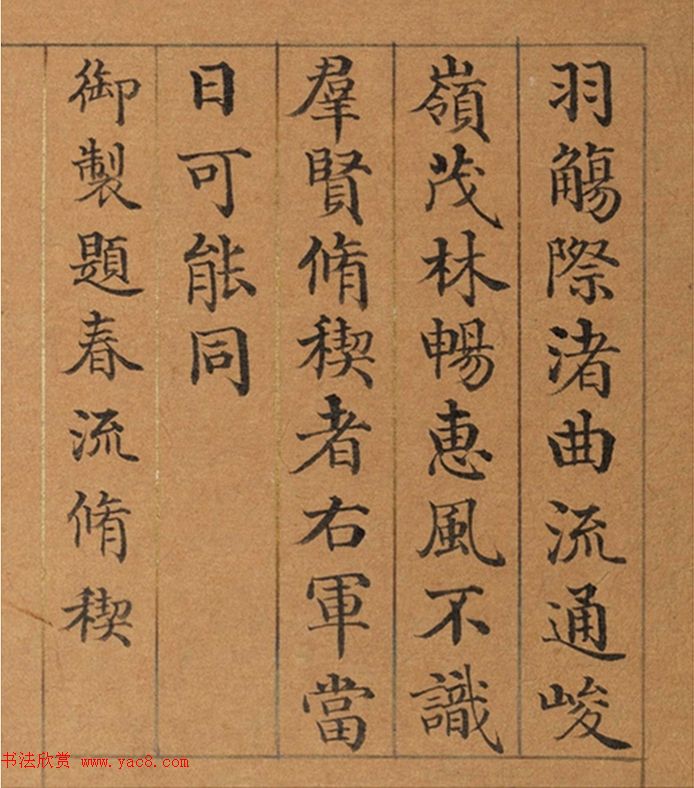 羽觴際渚曲流通峻
嶺茂林暢惠風不識
羣賢脩稧者右軍當
日可能同
御製題春流脩稧
书法欣赏 www.yac8.com